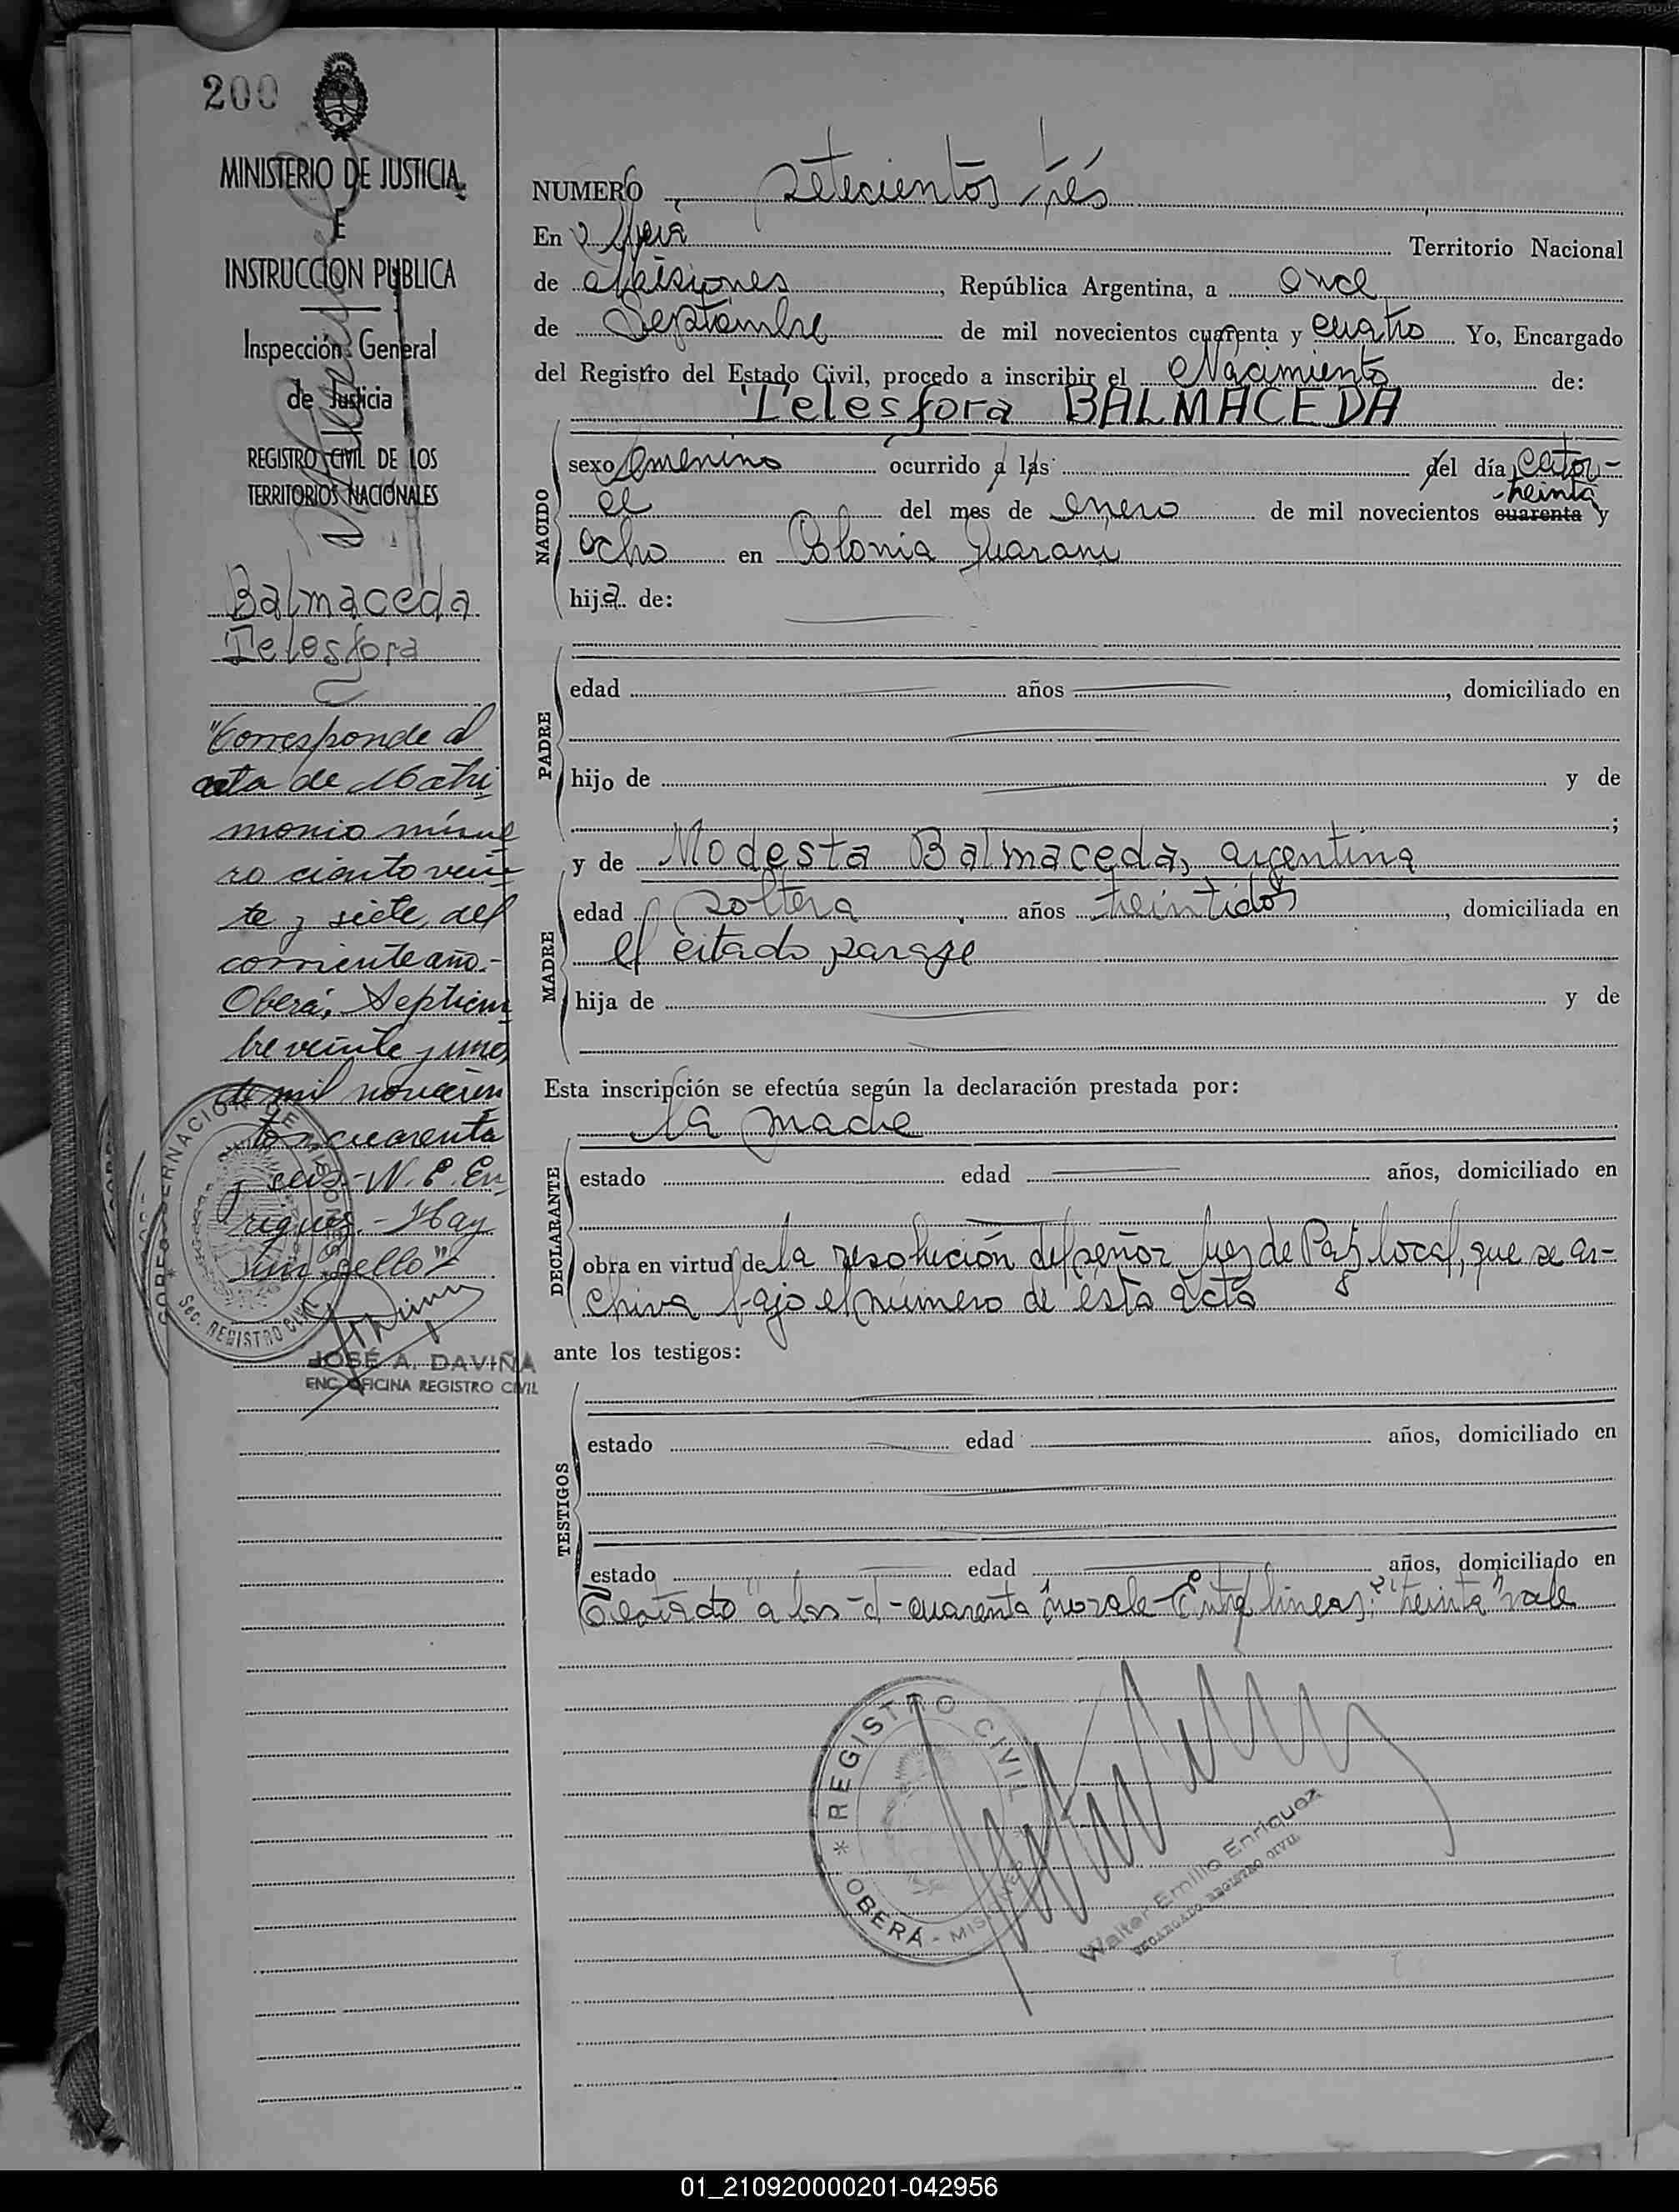 200
MINISTERIO DE JUSTICIA
E
INSTRUCCION PUBLICA
Inspección General
de Justicia
REGISTRO CIVIL DE LOS
TERRITORIOS NACIONALES
Balmaceda
Telesfora
"Corresponde al
acta de Matri
monio núme
ro ciento vein
te y siete, del
corriente año.-
Oberá, Septiem
bre veinte y uno,
de mil novecien
tos cuarenta
y seis.- W. E. En
riquez.- Hay
un sello"
GOBERNACION DE MISIONES
Sec. REGISTRO CIVIL
JOSÉ A. DAVIÑA
ENC. OFICINA REGISTRO CIVIL
NUMERO setecientos trés
En Oberá Territorio Nacional
de Misiones, República Argentina, a once
de Septiembre de mil novecientos cuarenta y cuatro Yo, Encargado
del Registro del Estado Civil, procedo a inscribir el Nacimiento de:
Telesfora BALMACEDA
NACIDO
sexo femenino ocurrido a las del día cator-
treinta
ce del mes de enero de mil novecientos cuarenta y
ocho en Colonia Guarani
hija de:
PADRE
edad años, domiciliado en
hijo de y de
;
MADRE
y de Modesta Balmaceda, argentina
edad soltera años treintidos, domiciliada en
el citado paraje
hija de y de
Esta inscripción se efectúa según la declaración prestada por:
la madre
DECLARANTE
estado edad años, domiciliado en
obra en virtud de la resolución del señor Juez de Paz local, que se ar-
chiva bajo el número de ésta acta
ante los testigos:
TESTIGOS
estado edad años, domiciliado en
estado edad años, domiciliado en
Testado "a las-d-cuarenta" no vale-Entre líneas: "treinta" vale
REGISTRO CIVIL
OBERÁ - MISIONES
Walter Emilio Enriquez
ENCARGADO REGISTRO CIVIL
01_210920000201-042956